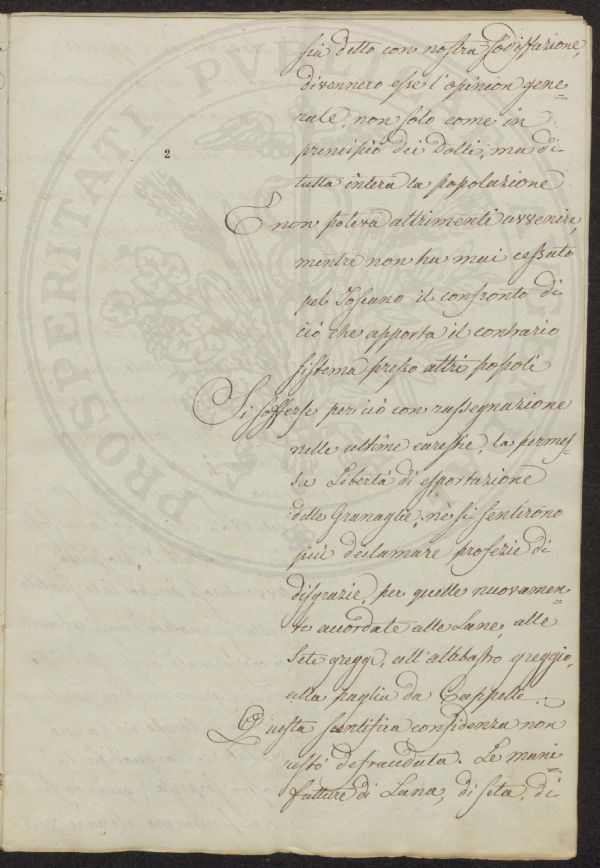 più detto con nostra sodisfazione,
divennero esse l'opinion gene=
rale, non solo come in
principio dei Dotti, ma di
tutta intera la popolazione
2
E non poteva altrimenti avvenire,
mentre non ha mai cessato
pel Toscano il confronto di
ciò che apporta il contrario
sistema presso altri popoli
Si sofferse perciò con rassegnazione
nelle ultime carestie, la permes=
sa Libertà di esportazione
delle Granaglie, nè si sentirono
più declamare profezie di
disgrazie, per quelle nuovamen=
te accordate alle Lane, alle
Sete gregge, all'allabastro greggio,
alla paglia da Cappelli.
Questa scientifica confidenza non
restò defraudata. Le mani=
fatture di Lana, di seta, di
PROSPERITATI PUBLICAE